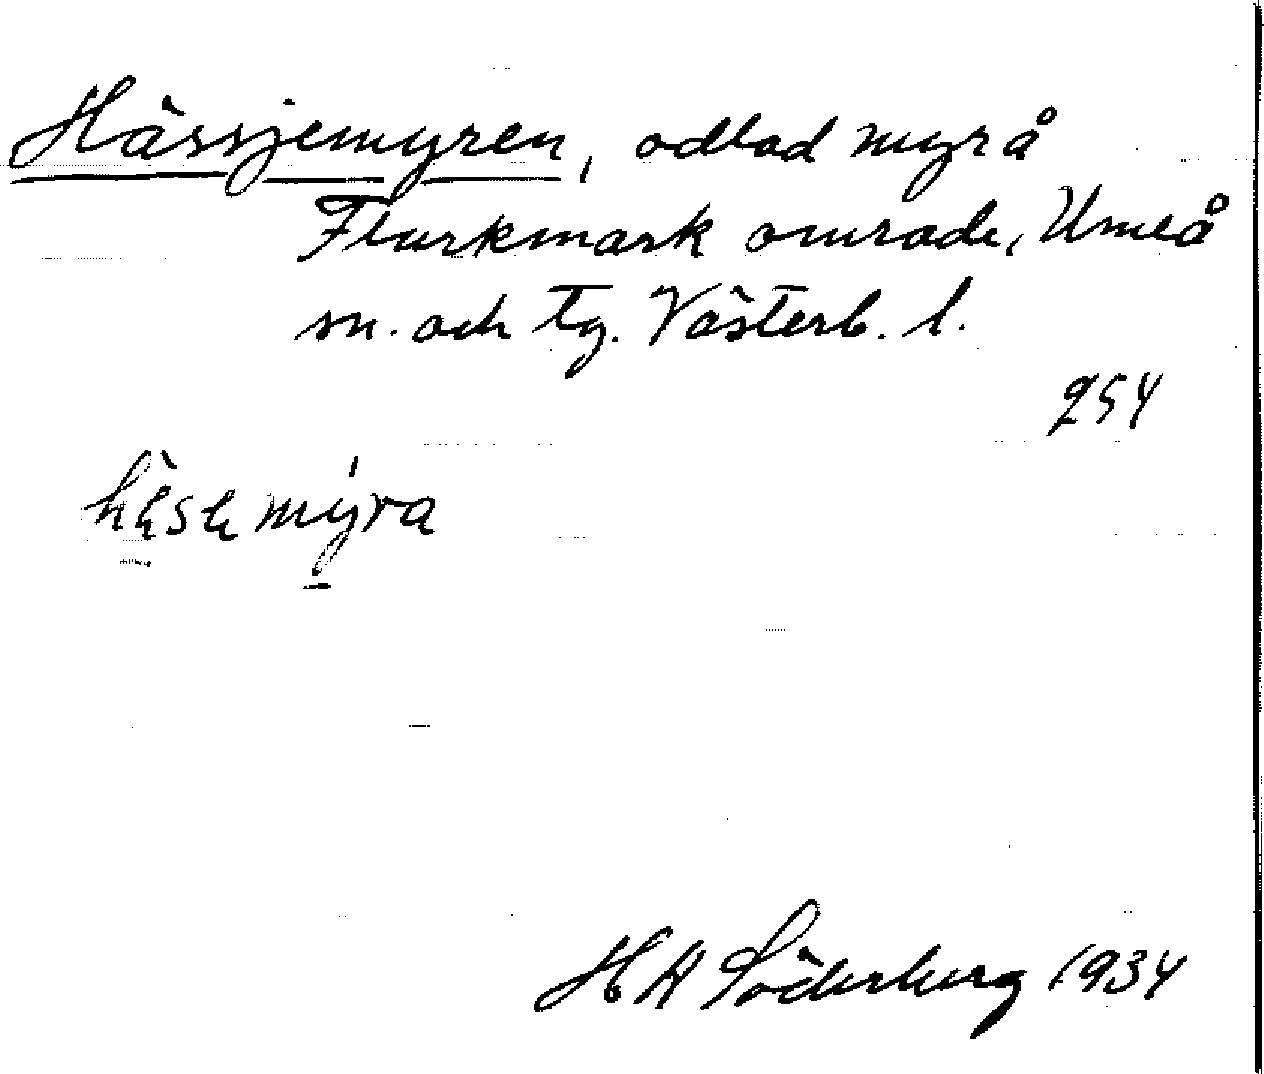 Hässjemyren, odlad myr å
Flurkmark område, Umeå
sn. och tg. Västerb. l.
254
myra
H A Söderberg 1934